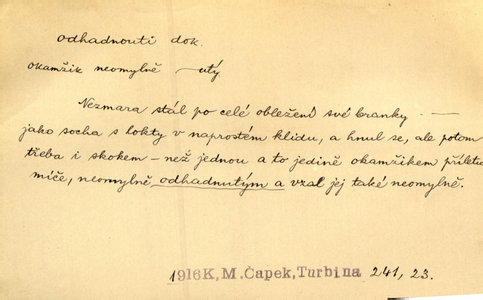 odhadnouti dok.
okamžik neomylně —utý
Nezmara stál po celé obležení své branky —
jako socha s lokty v naprostém klidu, a hnul se, ale potom
třeba i skokem – než jednou a to jedině okamžikem příletu
míče, neomylně odhadnutým a vzal jej také neomylně.
1916 K. M. Čapek, Turbina 241, 23.